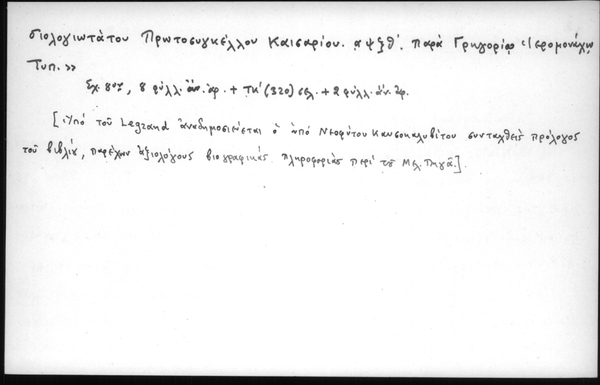 σιολογιωτάτου Πρωτοσυγκέλλου Καισαρίου. αψξθ΄. παρὰ Γρηγορίῳ Ἱερομονάχῳ
Τυπ.»
Σχ. 8ον, 8 φύλλ. ἄν. ἀρ. + τκ΄ (320) σελ. + 2 φύλλ. ἄν. ἀρ.
[Ὑπό τοῦ Legrand ἀναδημοσιεύεται ὁ ὑπό Νεοφύτου Καυσοκαλυβίτου συνταχθείς πρόλογος
τοῦ βιβλίου, παρέχων ἀξιολόγους βιογραφικάς πληροφορίας περί τοῦ Μελ. Πηγᾶ.]